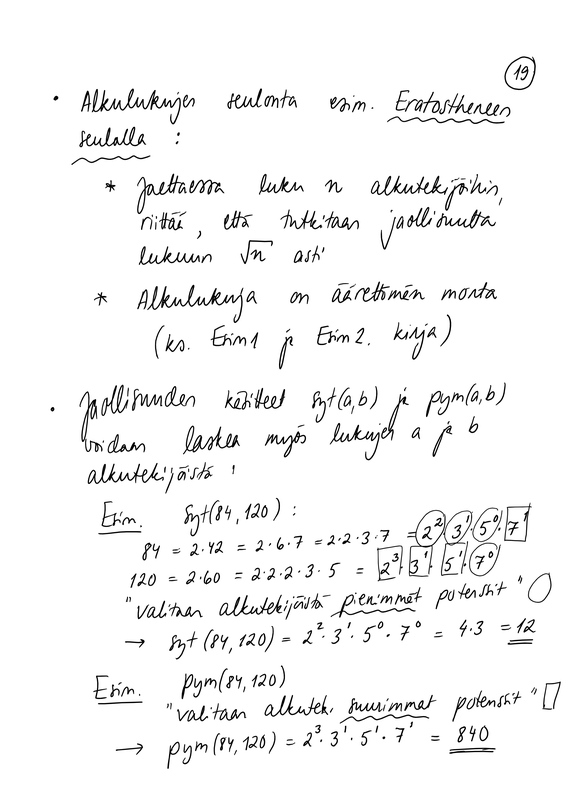 19
• Alkulukujen seulonta esim. Eratostheneen
seulalla :
* Jaettaessa luku n alkutekijöihin,
riittää, että tutkitaan jaollisuutta
lukuun √n asti
* Alkulukuja on äärettömän monta
(ks. Esim1 ja Esim2. kirja)
• Jaollisuuden käsitteet syt(a,b) ja pym(a,b)
voidaan laskea myös lukujen a ja b
alkutekijöistä :
Esim. syt(84,120) :
84 = 2·42 = 2·6·7 = 2·2·3·7 = 2²·3¹·5⁰·7¹
120 = 2·60 = 2·2·2·3·5 = 2³·3¹·5¹·7⁰
"valitaan alkutekijöistä pienimmät potenssit"
→ syt(84,120) = 2²·3¹·5⁰·7⁰ = 4·3 = 12
Esim. pym(84,120)
"valitaan alkutek. suurimmat potenssit"
→ pym(84,120) = 2³·3¹·5¹·7¹ = 840